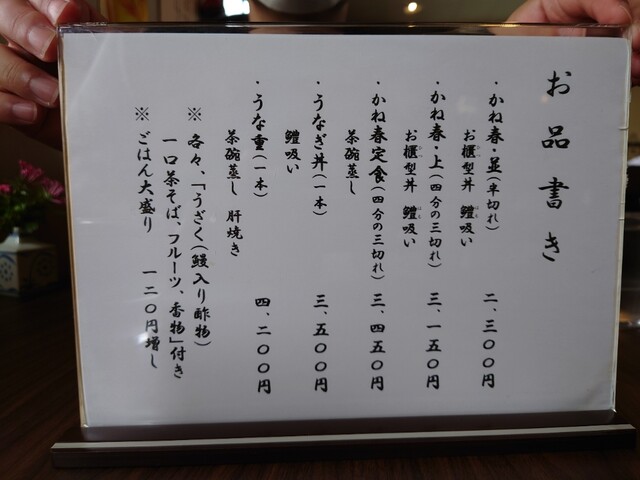 お品書き
・かね春・並(半切れ) 二、三〇〇円
お櫃型丼 鱧吸い
・かね春・上(四分の三切れ) 三、一五〇円
お櫃型丼 鱧吸い
・かね春定食(四分の三切れ) 三、四五〇円
茶碗蒸し
・うなぎ丼(一本) 三、五〇〇円
鱧吸い
・うな重(一本) 四、二〇〇円
茶碗蒸し 肝焼き
※ 各々、「うざく(鰻入り酢物)
一口茶そば、フルーツ、香物」付き
※ ごはん大盛り 一二〇円増し